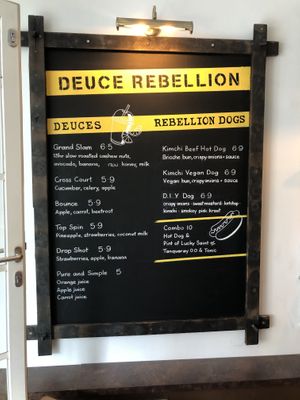 DEUCE REBELLION
DEUCES
Grand Slam 6.5
12hr slow roasted cashew nuts,
avocado, banana, raw honey, milk
Cross Court 5.9
Cucumber, celery, apple
Bounce 5.9
Apple, carrot, beetroot
Top Spin 5.9
Pineapple, strawberries, coconut milk
Drop Shot 5.9
Strawberries, apple, banana
Pure and Simple 5
Orange juice
Apple juice
Carrot juice
REBELLION DOGS
Kimchi Beef Hot Dog 6.9
Brioche bun, crispy onions + sauce
Kimchi Vegan Dog 6.9
Vegan bun, crispy onions + sauce
D.I.Y Dog 6.9
crispy onions · sweet mustard · ketchup
kimchi · smokey pink kraut
Combo 10
Hot Dog &
Pint of Lucky Saint or
Tanqueray 0.0 & Tonic